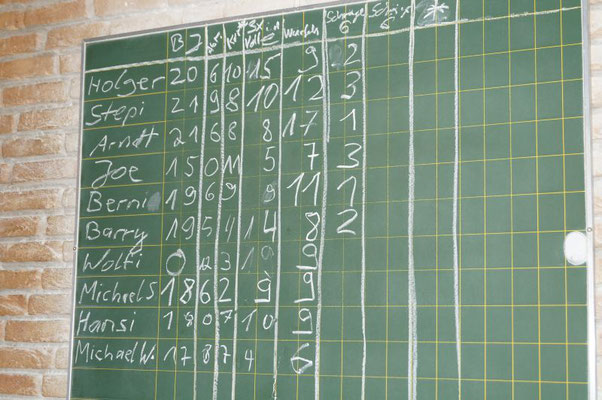 B J Würfeln 6 6 *
Holger 20 6 10 15 9 2
Stepi 21 9 8 10 12 3
Arndt 21 6 8 8 17 1
Joe 15 0 11 5 7 3
Berni 19 6 9 8 11 1
Barry 19 5 4 14 8 2
Wolfi 0 12 3 10 9
Michael S 18 6 2 9 9
Hansi 18 0 7 10 9
Michael W. 17 8 7 4 6